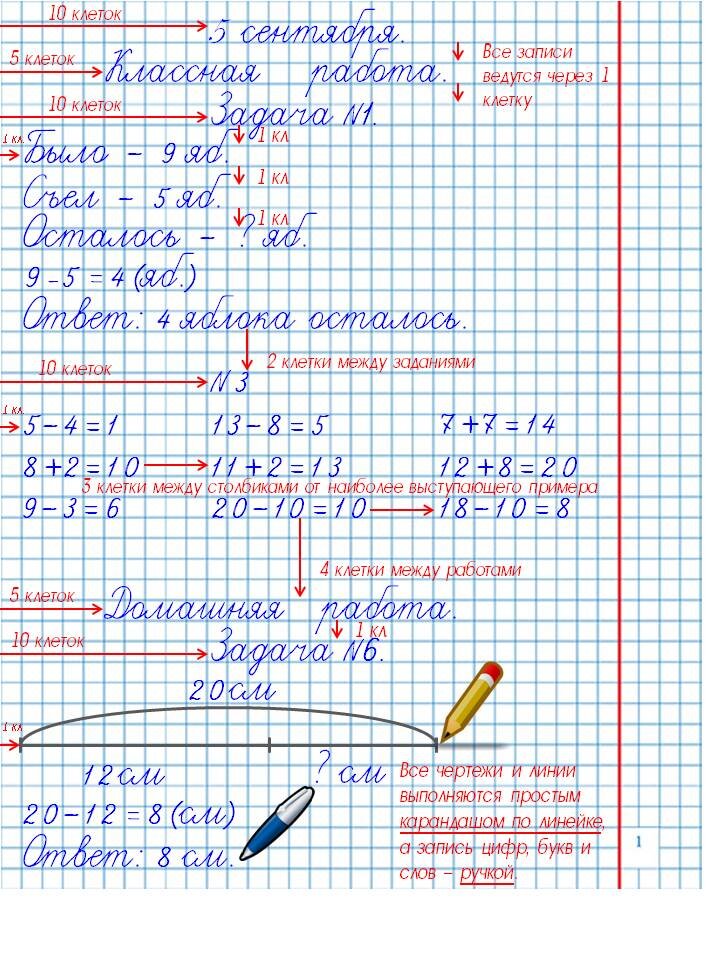 10 клеток
5 сентября.
5 клеток
Классная работа.
Все записи
ведутся через 1
клетку
10 клеток
Задача N1.
1 кл.
1 кл
Было – 9 яб.
1 кл
Съел – 5 яб.
1 кл
Осталось – ? яб.
9 – 5 = 4 (яб.)
Ответ: 4 яблока осталось.
2 клетки между заданиями
10 клеток
N 3
1 кл
5 – 4 = 1 13 – 8 = 5 7 + 7 = 14
8 + 2 = 10 11 + 2 = 13 12 + 8 = 20
3 клетки между столбиками от наиболее выступающего примера
9 – 3 = 6 20 – 10 = 10 18 – 10 = 8
4 клетки между работами
5 клеток
Домашняя работа.
1 кл
10 клеток
Задача N6.
20 см
1 кл
12 см ? см
20 – 12 = 8 (см)
Ответ: 8 см.
Все чертежи и линии
выполняются простым
карандашом по линейке,
а запись цифр, букв и
слов – ручкой.
1